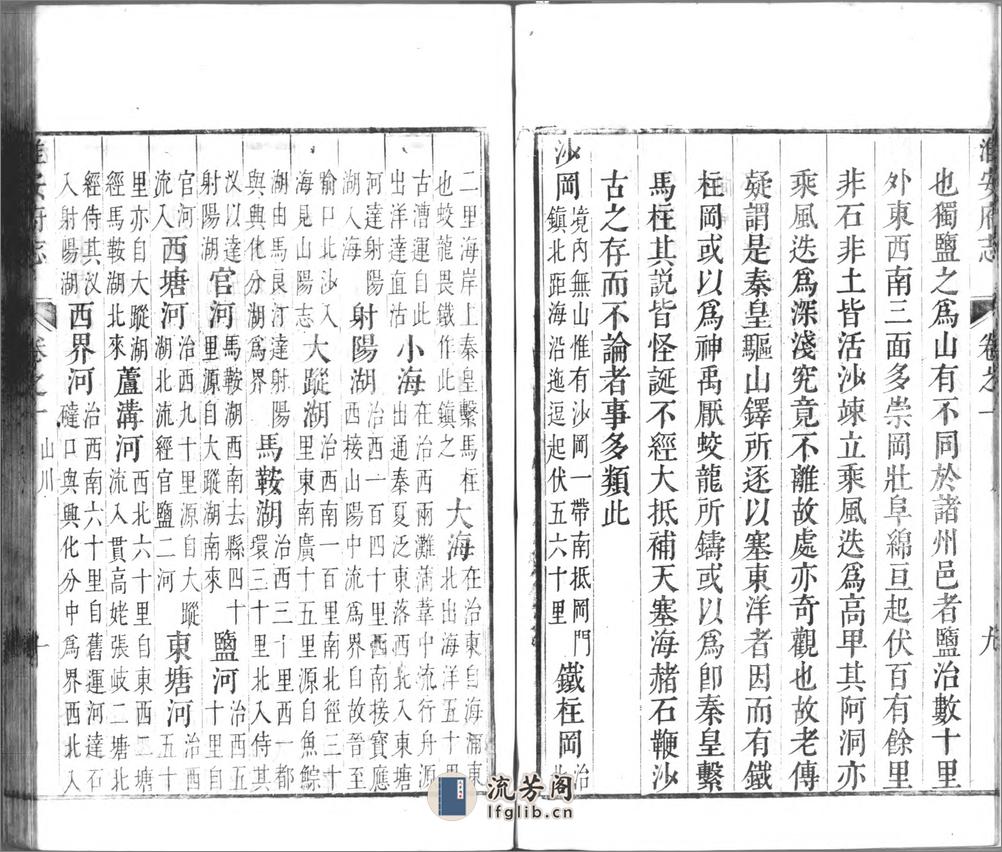 淮安府志 卷之一 九
也獨鹽之爲山有不同於諸州邑者鹽治數十里
外東西南三面多崇岡壯阜綿亘起伏百有餘里
非石非土皆活沙竦立乘風迭爲高卑其阿洞亦
乘風迭爲深淺究竟不離故處亦奇觀也故老傳
疑謂是秦皇驅山鐸所逐以塞東洋者因而有鐵
柱岡或以爲神禹厭蛟龍所鑄或以爲卽秦皇繫
馬柱其説皆怪誕不經大抵補天塞海赭石鞭沙
古之存而不論者事多類此
沙岡 境內無山惟有沙岡一帶南抵岡門鎮北距海沿迤逗起伏五六十里 鐵柱岡 治北
二里海岸上秦皇繫馬柱也蛟龍畏鐵作此鎮之 大海 在治東自海涌東北出海洋五十里
古漕運自此出洋達直沽 小海 在治西兩灘蒲葦中流行舟源出通秦夏泛東落西北入東塘
河達射陽湖入海 射陽湖 治西一百四十里西南接寶應西接山陽中流爲界自故晉至
喻口北沙入海見山陽志 大蹤湖 治西南一百里南北徑三十里東南廣十五里源自魚鯮
湖由馬良汀達射陽與興化分湖爲界 馬鞍湖 治西三十里西一都環三十里北入侍其
汊以達射陽湖 官河 馬鞍湖西南去縣四十里源自大蹤湖南來 鹽河 治西五十里自
官河流入 西塘河 治西九十里源自大蹤湖北流經官鹽二河 東塘河 治西五十
里亦自大蹤湖經馬鞍湖北來 蘆溝河 西北六十里自東西二塘河流入貫高姥張岐二塘北
經侍其汊入射陽湖 西界河 治西南六十里自舊運河達石䃮口與興化分中爲界西北入
淮安府志 卷之一 山川 十
流芳阁
lfglib.cn